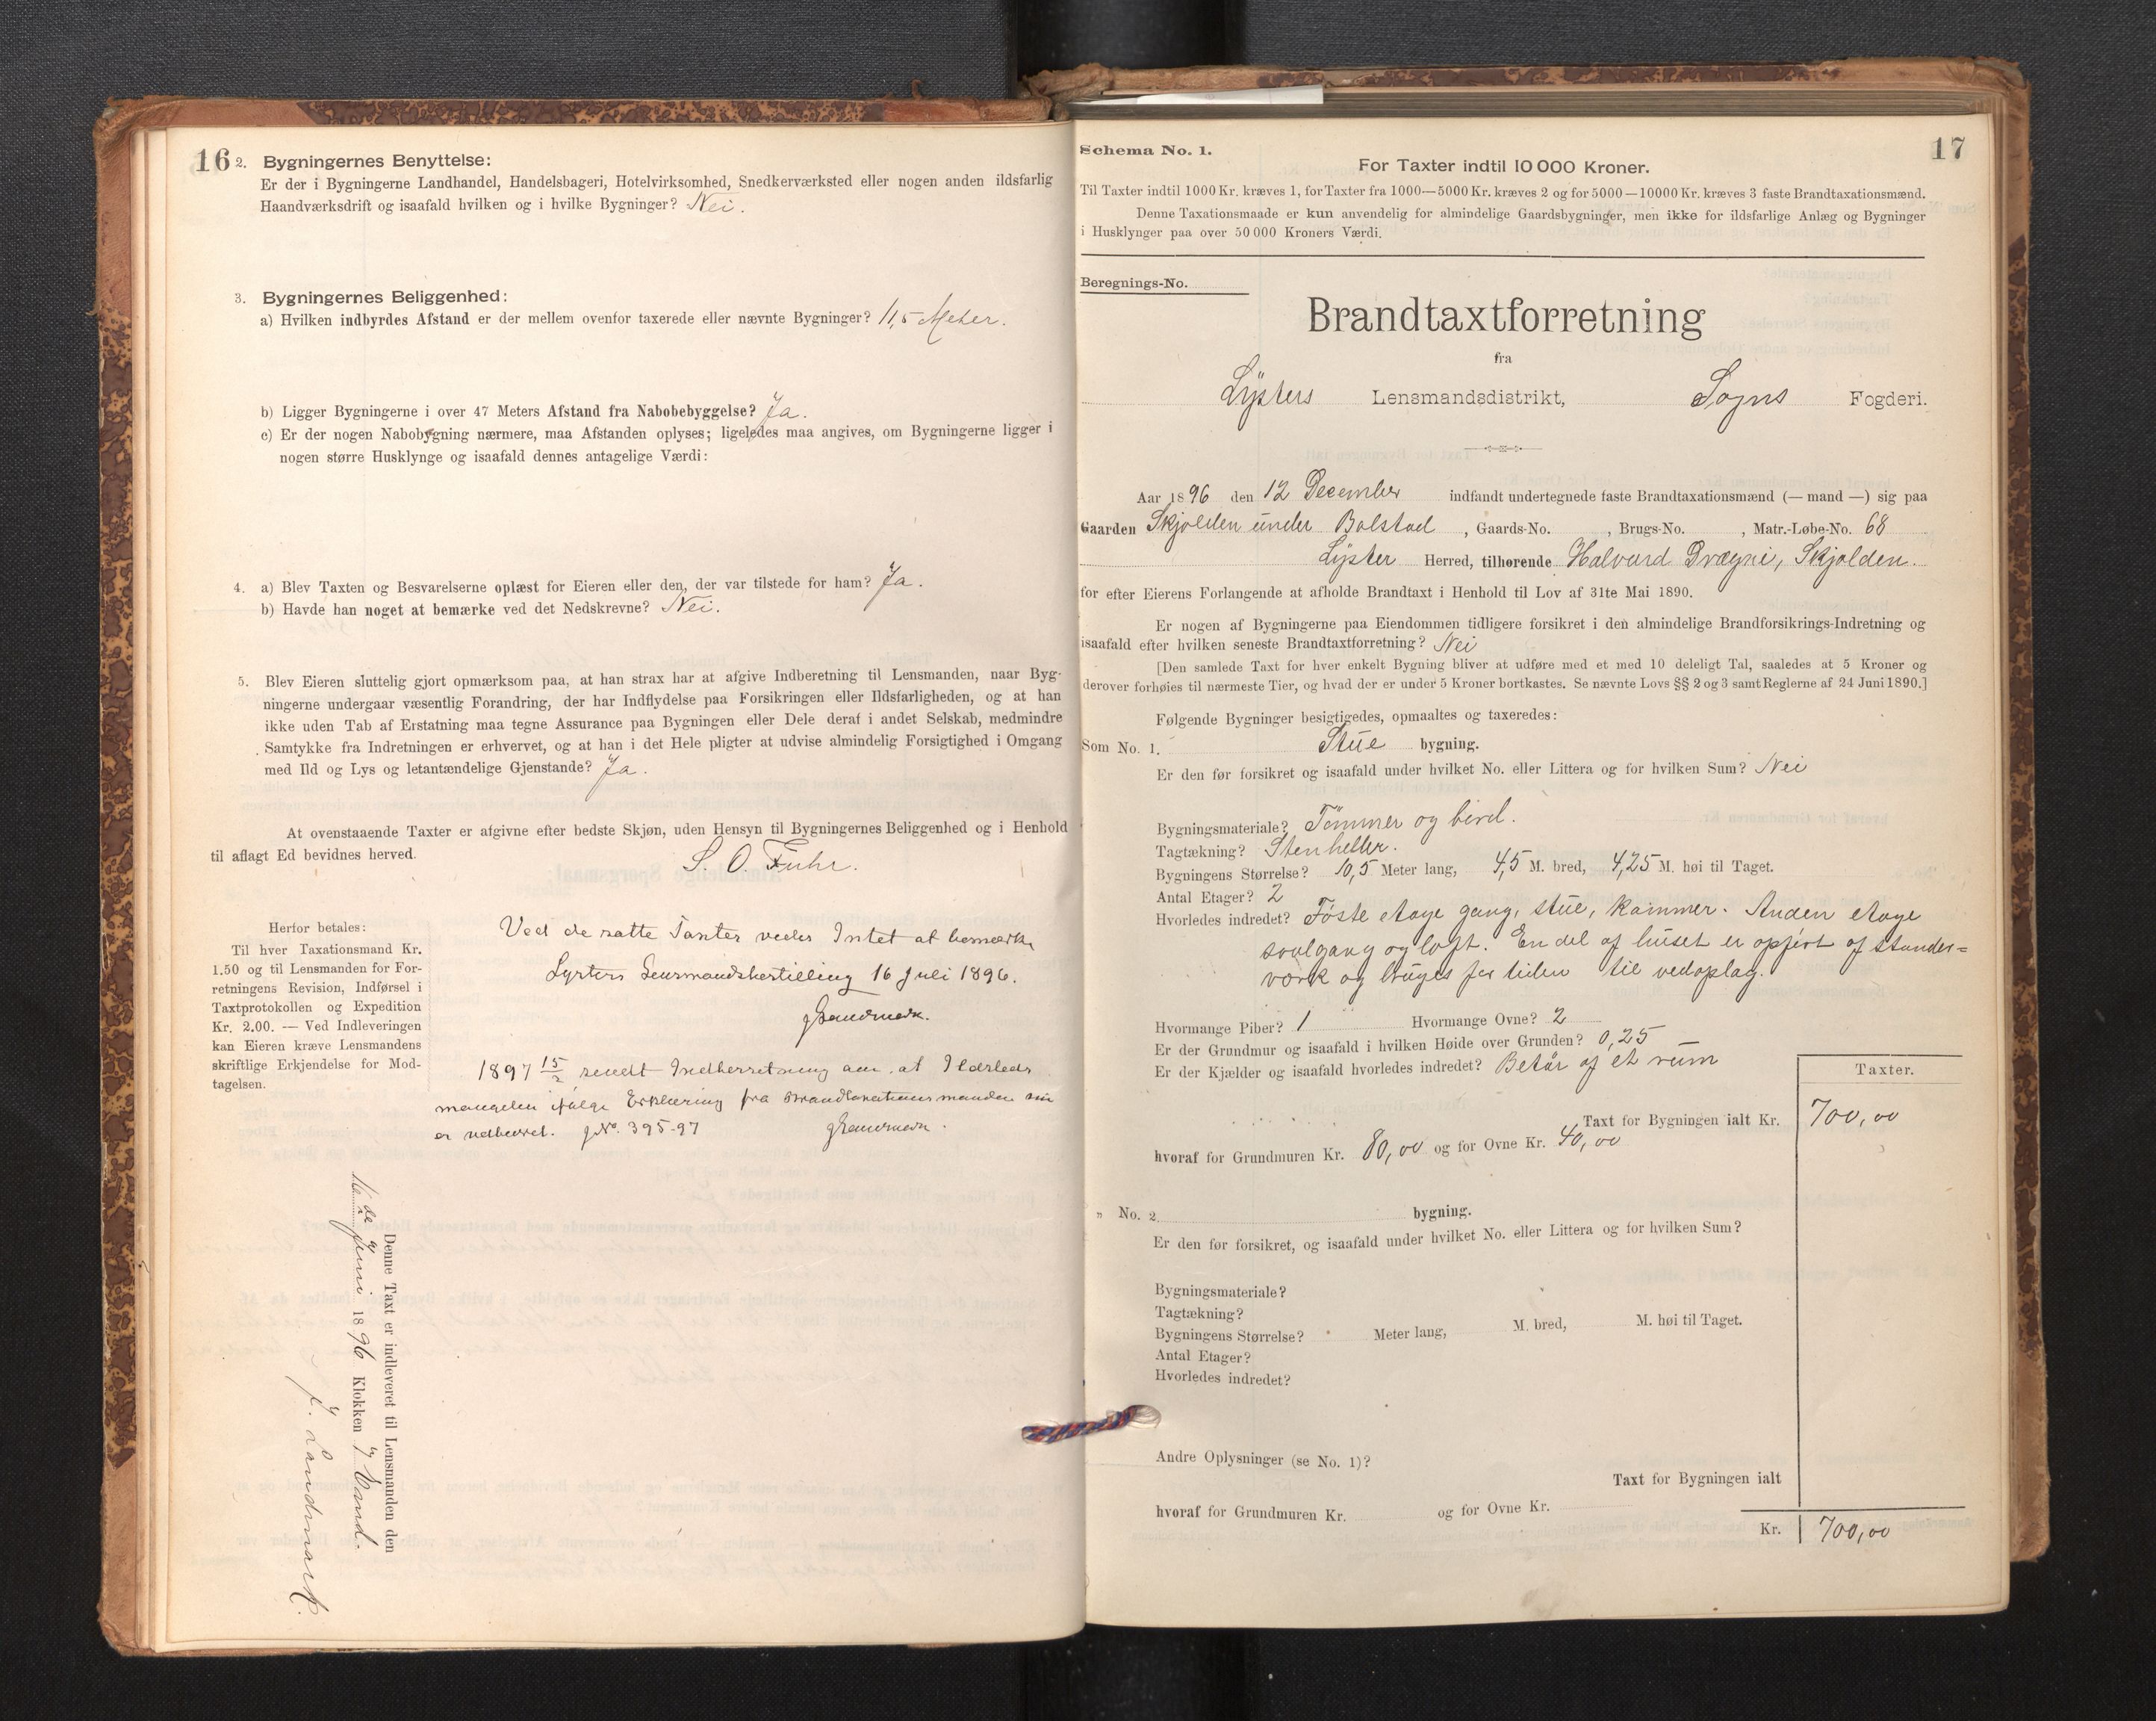 16
2. Bygningernes Benyttelse:
Er der i Bygningerne Landhandel, Handelsbageri, Hotelvirksomhed, Snedkerværksted eller nogen anden ildsfarlig
Haandværksdrift og isaafald hvilken og i hvilke Bygninger? Nei.
3. Bygningernes Beliggenhed:
a) Hvilken indbyrdes Afstand er der mellem ovenfor taxerede eller nævnte Bygninger? 11,5 Meter.
b) Ligger Bygningerne i over 47 Meters Afstand fra Nabobebyggelse? Ja.
c) Er der nogen Nabobygning nærmere, maa Afstanden oplyses; ligeledes maa angives, om Bygningerne ligger i
nogen større Husklynge og isaafald dennes antagelige Værdi:
4. a) Blev Taxten og Besvarelserne oplæst for Eieren eller den, der var tilstede for ham? Ja.
b) Havde han noget at bemærke ved det Nedskrevne? Nei.
5. Blev Eieren sluttelig gjort opmærksom paa, at han strax har at afgive Indberetning til Lensmanden, naar Byg-
ningerne undergaar væsentlig Forandring, der har Indflydelse paa Forsikringen eller Ildsfarligheden, og at han
ikke uden Tab af Erstatning maa tegne Assurance paa Bygningen eller Dele deraf i andet Selskab, medmindre
Samtykke fra Indretningen er erhvervet, og at han i det Hele pligter at udvise almindelig Forsigtighed i Omgang
med Ild og Lys og letantændelige Gjenstande? Ja.
At ovenstaaende Taxter er afgivne efter bedste Skjøn, uden Hensyn til Bygningernes Beliggenhed og i Henhold
til aflagt Ed bevidnes herved.
S. O. Fuhr.
Herfor betales:
Til hver Taxationsmand Kr.
1.50 og til Lensmanden for For-
retningens Revision, Indførsel i
Taxtprotokollen og Expedition
Kr. 2.00. — Ved Indleveringen
kan Eieren kræve Lensmandens
skriftlige Erkjendelse for Mod-
tagelsen.
Ved de satte Taxter vides Intet at bemærke
Lysters Lensmandsbestilling 16 Juli 1896.
J Landmark.
1897 15/2 sendt Indberetning om, at Ildsteds
mangelen ifølge Erklæring fra Brandtaxationsmanden
er udbedret. JNo. 395-97 J Landmark.
Denne Taxt er indleveret til Lensmanden den
16de Juni 1896 Klokken 7 Efmd.
J. Landmark.
17
Schema No. 1.
For Taxter indtil 10 000 Kroner.
Til Taxter indtil 1000 Kr. kræves 1, for Taxter fra 1000—5000 Kr. kræves 2 og for 5000—10000 Kr. kræves 3 faste Brandtaxationsmænd.
Denne Taxationsmaade er kun anvendelig for almindelige Gaardsbygninger, men ikke for ildsfarlige Anlæg og Bygninger
i Husklynger paa over 50 000 Kroners Værdi.
Beregnings-No.
Brandtaxtforretning
fra
Lysters Lensmandsdistrikt, Sogns Fogderi.
Aar 1896 den 12 December indfandt undertegnede faste Brandtaxationsmænd (— mand —) sig paa
Gaarden Skjolden under Bolstad, Gaards-No. , Brugs-No. , Matr.-Løbe-No. 68
Lyster Herred, tilhørende Halvard Drægni, Skjolden.
for efter Eierens Forlangende at afholde Brandtaxt i Henhold til Lov af 31te Mai 1890.
Er nogen af Bygningerne paa Eiendommen tidligere forsikret i den almindelige Brandforsikrings-Indretning og
isaafald efter hvilken seneste Brandtaxtforretning? Nei
[Den samlede Taxt for hver enkelt Bygning bliver at udføre med et med 10 deleligt Tal, saaledes at 5 Kroner og
derover forhøies til nærmeste Tier, og hvad der er under 5 Kroner bortkastes. Se nævnte Lovs §§ 2 og 3 samt Reglerne af 24 Juni 1890.]
Følgende Bygninger besigtigedes, opmaaltes og taxeredes:
Som No. 1. Stue bygning.
Er den før forsikret og isaafald under hvilket No. eller Littera og for hvilken Sum? Nei
Bygningsmateriale? Tømmer og bord.
Tagtækning? Stenheller.
Bygningens Størrelse? 10,5 Meter lang, 4,5 M. bred, 4,25 M. høi til Taget.
Antal Etager? 2
Hvorledes indredet? Føste etage gang, stue, kammer. Anden etage
svalgang og loft. En del af huset er opført af stander-
værk og bruges for tiden til vedoplag.
Hvormange Piber? 1 Hvormange Ovne? 2
Er der Grundmur og isaafald i hvilken Høide over Grunden? 0,25
Er der Kjælder og isaafald hvorledes indredet? Betår af et rum
Taxter.
Taxt for Bygningen ialt Kr. 700,00
hvoraf for Grundmuren Kr. 80,00 og for Ovne Kr. 40,00
" No. 2. bygning.
Er den før forsikret, og isaafald under hvilket No. eller Littera og for hvilken Sum?
Bygningsmateriale?
Tagtækning?
Bygningens Størrelse? Meter lang, M. bred, M. høi til Taget.
Antal Etager?
Hvorledes indredet?
Andre Oplysninger (se No. 1)?
Taxt for Bygningen ialt
hvoraf for Grundmuren Kr. og for Ovne Kr.
Kr. 700,00